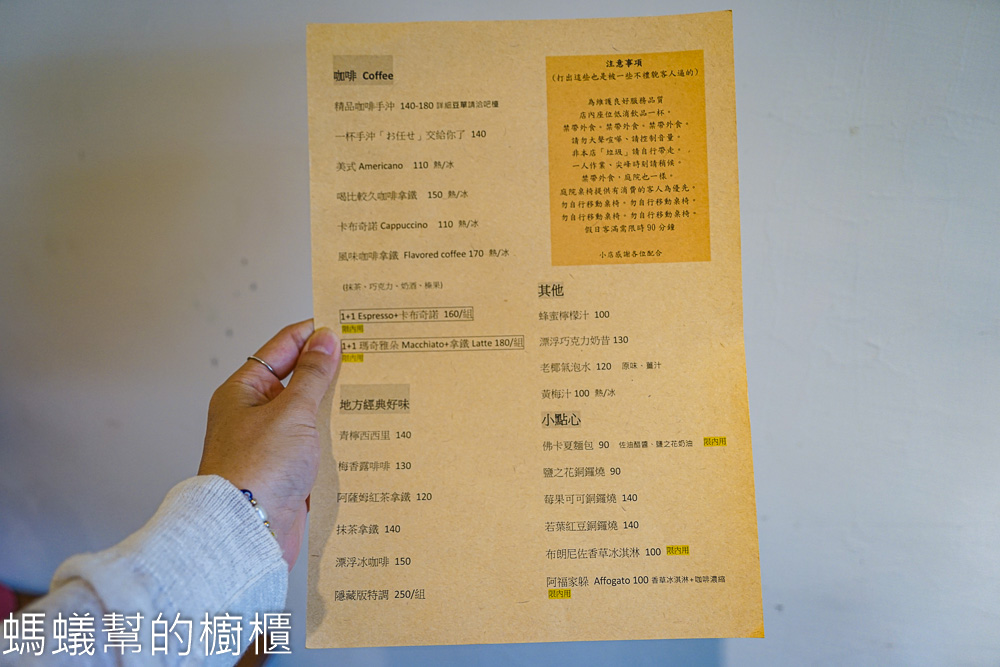 咖啡 Coffee
精品咖啡手沖 140-180 詳細豆單請洽吧檯
一杯手沖「お任せ」交給你了 140
美式 Americano 110 熱/冰
喝比較久咖啡拿鐵 150 熱/冰
卡布奇諾 Cappuccino 110 熱/冰
風味咖啡拿鐵 Flavored coffee 170 熱/冰
(抹茶、巧克力、奶酒、榛果)
1+1 Espresso+卡布奇諾 160/組
限內用
1+1 瑪奇雅朵 Macchiato+拿鐵 Latte 180/組
限內用
地方經典好味
青檸西西里 140
梅香露啡啡 130
阿薩姆紅茶拿鐵 120
抹茶拿鐵 140
漂浮冰咖啡 150
隱藏版特調 250/組
注意事項
(打出這些也是被一些不禮貌客人逼的)
為維護良好服務品質
店內座位低消飲品一杯。
禁帶外食。禁帶外食。禁帶外食。
請勿大聲喧嘩、請控制音量。
非本店「垃圾」請自行帶走。
一人作業、尖峰時刻請稍候。
禁帶外食，庭院也一樣。
庭院桌椅提供有消費的客人為優先。
勿自行移動桌椅。勿自行移動桌椅。
勿自行移動桌椅。勿自行移動桌椅。
假日客滿需限時 90 分鐘
小店感謝各位配合
其他
蜂蜜檸檬汁 100
漂浮巧克力奶昔 130
老椰氣泡水 120 原味、薑汁
黃梅汁 100 熱/冰
小點心
佛卡夏麵包 90 佐油醋醬、鹽之花奶油 限內用
鹽之花銅鑼燒 90
莓果可可銅鑼燒 140
若葉紅豆銅鑼燒 140
布朗尼佐香草冰淇淋 100 限內用
阿福家躲 Affogato 100 香草冰淇淋+咖啡濃縮
限內用
螞蟻幫的櫥櫃